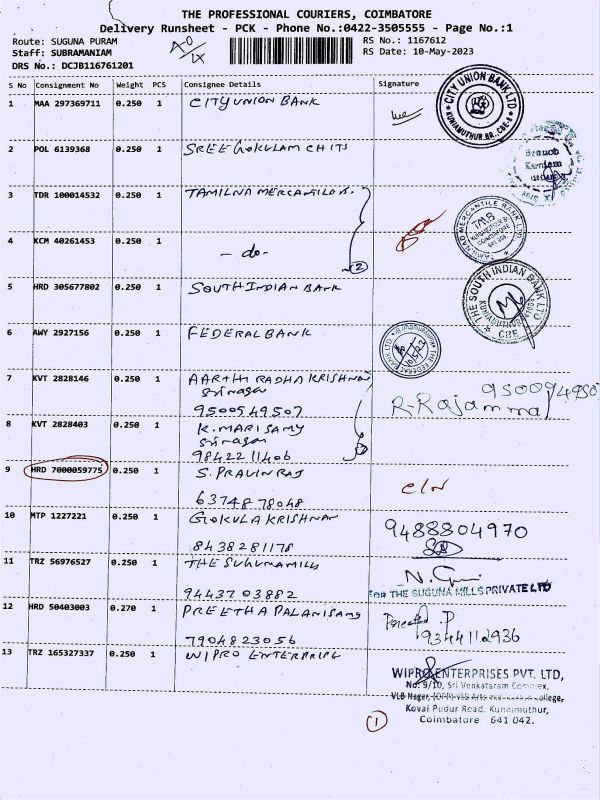 THE PROFESSIONAL COURIERS, COIMBATORE
Delivery Runsheet - PCK - Phone No.:0422-3505555 - Page No.:1
Route: SUGUNA PURAM
RS No.: 1167612
Staff: SUBRAMANIAM
RS Date: 10-May-2023
DRS No.: DCJB116761201
S No Consignment No Weight PCS Consignee Details Signature
1 MAA 297369711 0.250 1 CITY UNION BANK
CITY UNION BANK LTD
KUNIAMUTHUR.BR., CBE-8
2 POL 6139368 0.250 1 SREE GOKULAM CHITS
Branch
3 TDR 100014532 0.250 1 TAMILNA MERCANTILE B.
TAMILNAD MERCANTILE BANK LTD.
T.M.B
KUNIAMUTHUR
COIMBATORE
4 KCM 40261453 0.250 1 - do -
2
5 HRD 305677802 0.250 1 SOUTH INDIAN BANK
THE SOUTH INDIAN BANK LTD
KUNIAMUTHUR
CBE
6 AWY 2927156 0.250 1 FEDERAL BANK
THE FEDERAL BANK LTD
7 KVT 2828146 0.250 1 AARTHI RADHA KRISHNAN
Srinagar
9500549507
R-Rajammal
8 KVT 2828403 0.250 1 K. MARISAMY
Srinagar
9842211406
9 HRD 7000059775 0.250 1 S. PRAVIN RAJ
6374878048
10 MTP 1227221 0.250 1 GOKULA KRISHNAN
8438281178
9488804970
11 TRZ 56976527 0.250 1 THE SUGUNA MILLS
9443703882
FOR THE SUGUNA MILLS PRIVATE LTD
12 HRD 50403003 0.270 1 PREETHA PALANISAMY
7904823056
9344112936
13 TRZ 165327337 0.250 1 WIPRO ENTERPRISE
WIPRO ENTERPRISES PVT. LTD,
No: 9/10, Sri Venkataram Complex,
VLB Nager, College,
Kovai Pudur Road. Kuniamuthur,
Coimbatore 641 042.
1